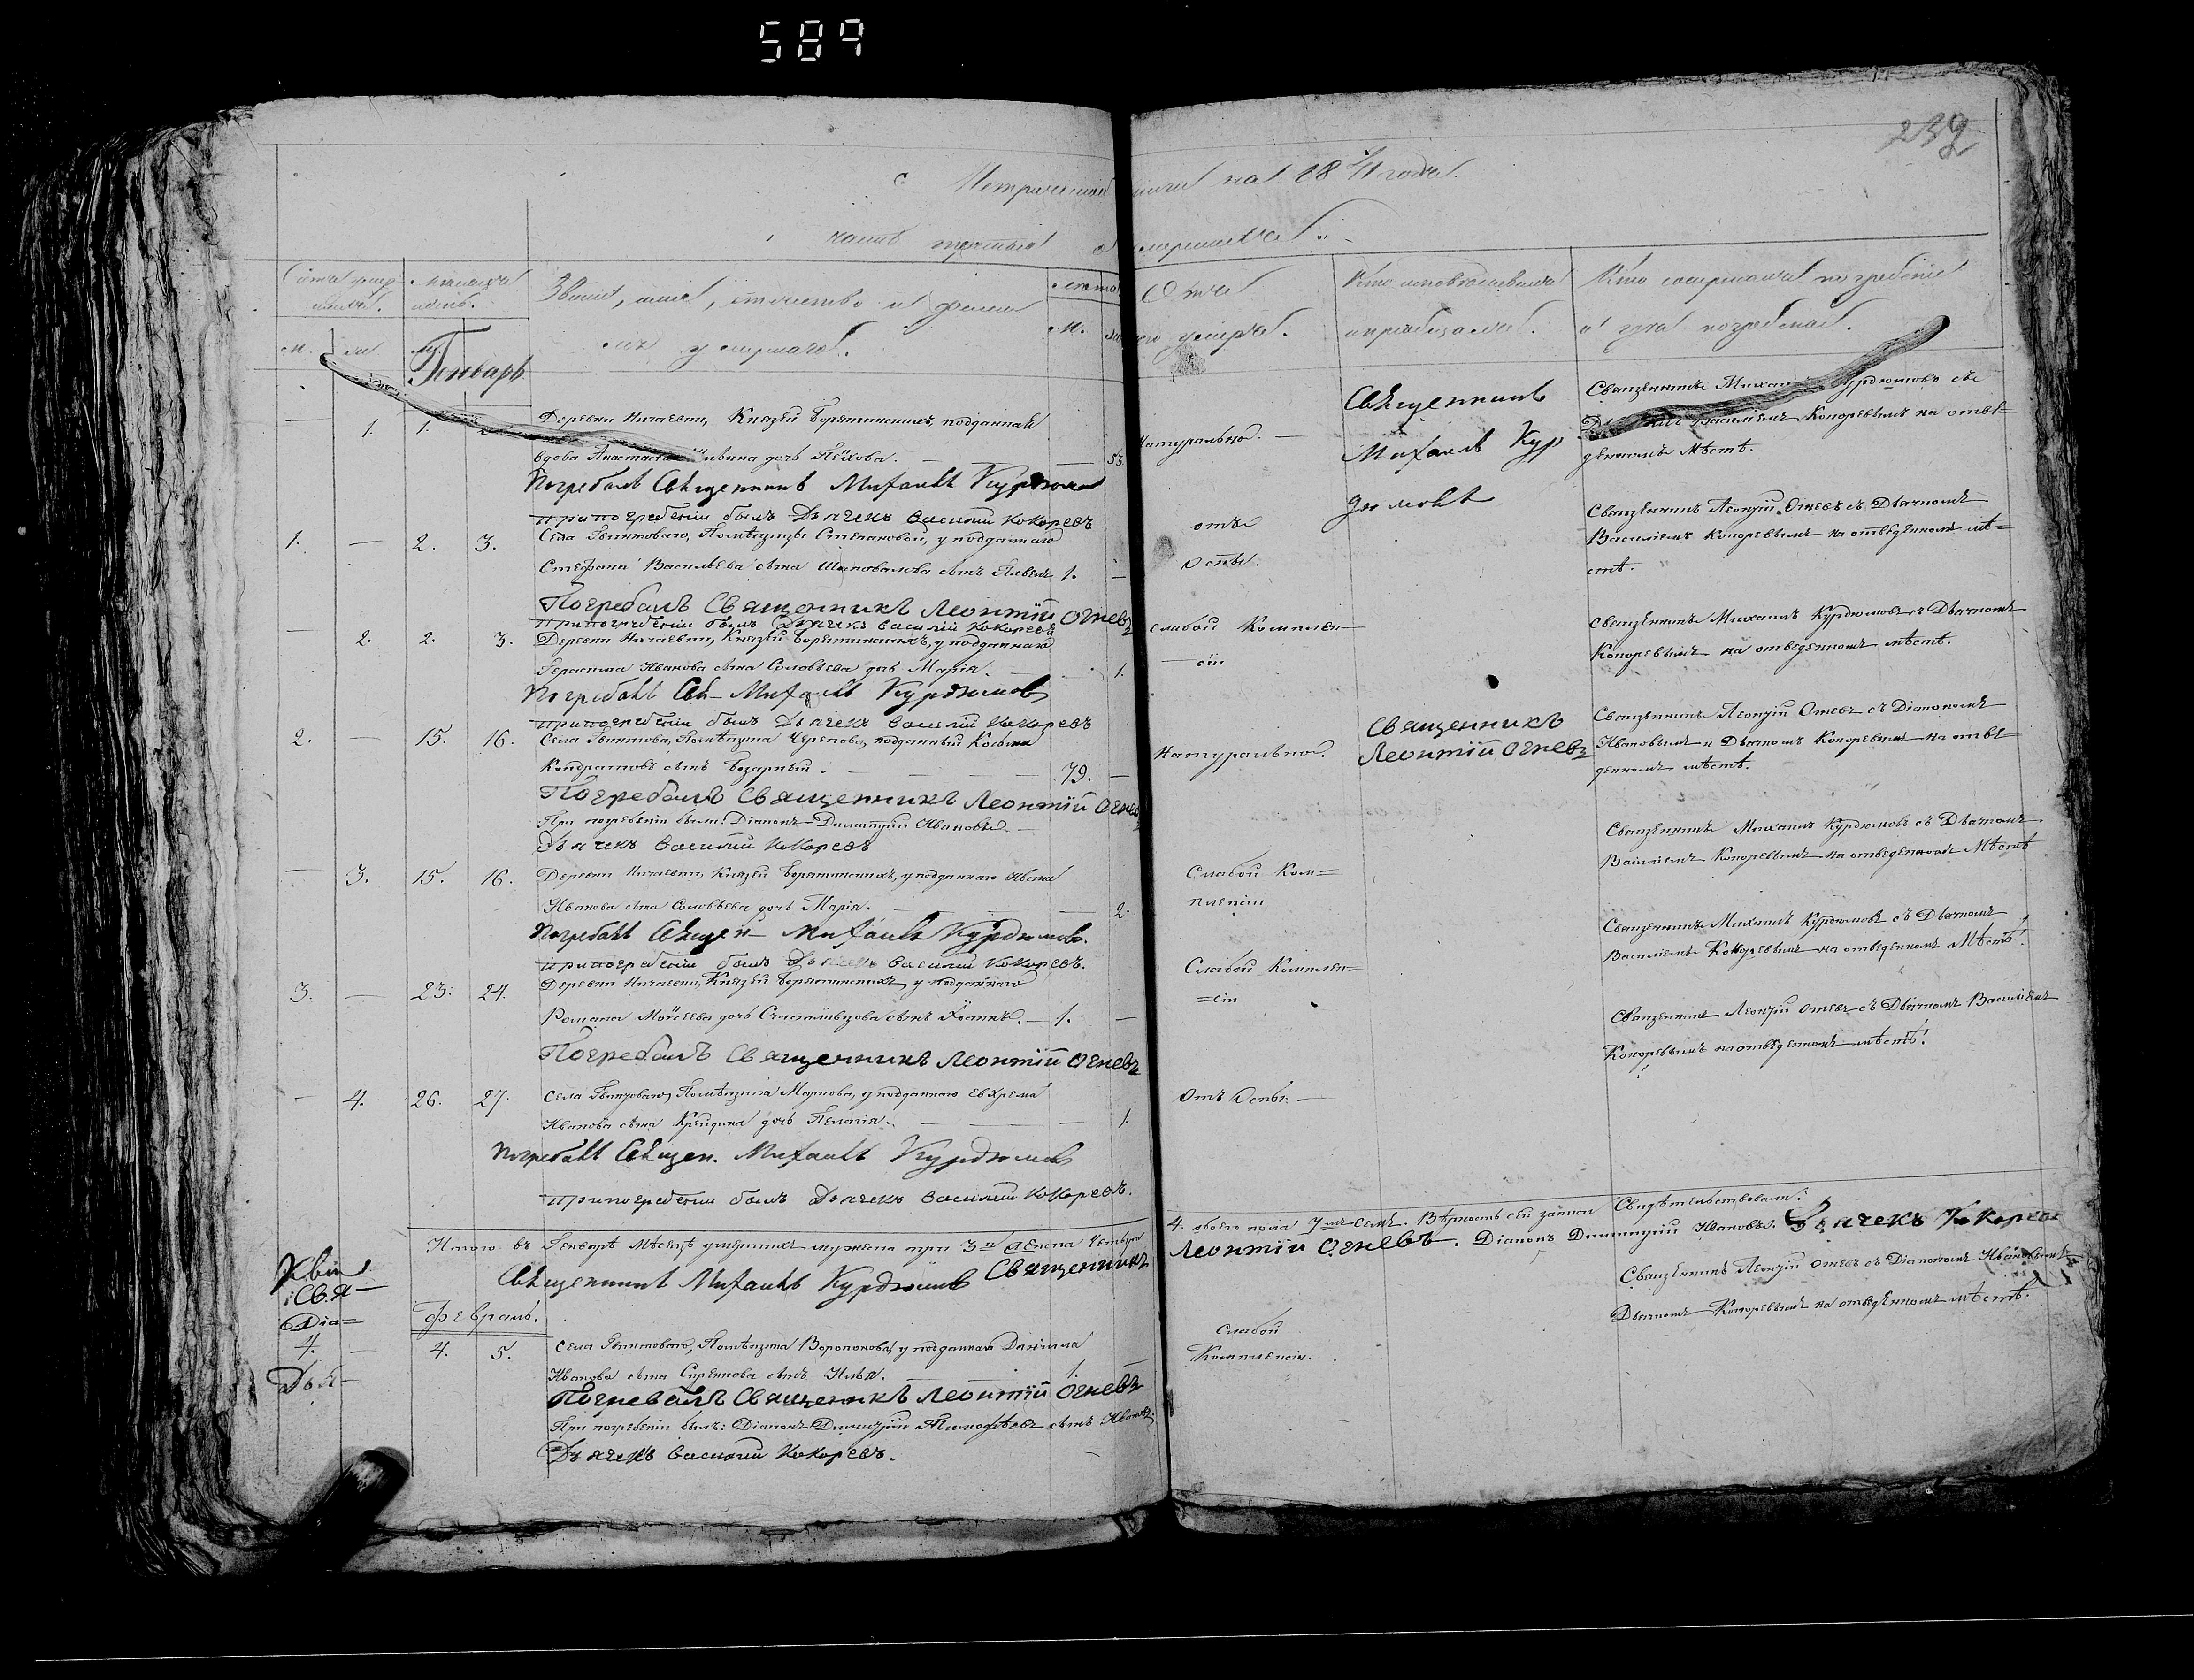 589
239
Метрической книги на 1841 года.
часть третья о умершихъ.
Счетъ умер
шихъ.
Мѣсяцъ
и день.
Званіе, имя, отчество и фами
лія умершаго.
М.
Отъ чего умеръ.
Кто исповѣдывалъ
и пріобщалъ.
Кто совершалъ погребеніе
и гдѣ погребены.
Генварь
1. 1.
Деревни Ничаевки, Князей Борятинскихъ, подданная
вдова Анастасія дочь 53.
Натуральной.
Священникъ
Михаилъ Кур
дюмовъ
Священникъ Михаилъ Курдюмовъ съ
Василіемъ Кокоревымъ на отве
денномъ мѣстѣ.
Погребалъ Священникъ Михаилъ Курдюмовъ
при погребеніи былъ Дьячекъ Василій Кокоревъ
1. — 2. 3.
Села Помѣщицы Степановой, у подданнаго
Стефана Васильева сына Шаповалова сынъ Павелъ 1. —
отъ
Оспы.
Священникъ Леонтій Огневъ съ Дьячкомъ
Василіемъ Кокоревымъ на отведенномъ мѣ=
стѣ.
Погребалъ Священникъ Леонтій Огневъ
при погребеніи былъ Дьячекъ Василій Кокоревъ
— 2. 2. 3.
Деревни Ничаевки, Князей Борятинскихъ, у подданнаго
Герасима Иванова сына Соловьева дочь Марія. — 1.
слабой Комплек—
—сіи
Священникъ Михаилъ Курдюмовъ съ Дьячкомъ
Кокоревымъ на отведенномъ мѣстѣ.
Погребалъ Свя— Михаилъ Курдюмовъ
при погребеніи былъ Дьячекъ Василій Кокоревъ
2. — 15. 16.
Села Помѣщика Черепова, подданный Косма
Кондратовъ сынъ 79. —
Натуральной.
Священникъ
Леонтій Огневъ
Священникъ Леонтій Огневъ съ Діакономъ
Ивановымъ и Дьячкомъ Кокоревымъ на отве
денномъ мѣстѣ.
Погребалъ Священникъ Леонтій Огневъ
При погребеніи были: Діаконъ Димитрій Ивановъ. —
Дьячекъ Василій Кокоревъ
— 3. 15. 16.
Деревни Ничаевки, Князей Борятинскихъ, у подданнаго Ивана
Иванова сына Соловьева дочь Марія. — 2.
Слабой Ком=
плексіи
Священникъ Михаилъ Курдюмовъ съ Дьячкомъ
Василіемъ Кокоревымъ на отведенномъ Мѣстѣ
Погребалъ Священ— Михаилъ Курдюмовъ.
при погребеніи былъ Дьячекъ Василій Кокоревъ.
3. — 23. 24.
Деревни Ничаевки, Князей Борятинскихъ у подданнаго
Романа Моисеева сынъ Іоаннъ. — 1. —
Слабой Комплек=
=сіи
Священникъ Михаилъ Курдюмовъ съ Дьячкомъ
Василіемъ Кокоревымъ на отведенномъ Мѣстѣ.
Погребалъ Священникъ Леонтій Огневъ
Священникъ Леонтій Огневъ съ Дьячкомъ Василіемъ
Кокоревымъ на отведенномъ мѣстѣ.
— 4. 26. 27.
Села Помѣщика Маркова, у подданнаго
Иванова сына дочь Пелагія. — 1.
Отъ Оспы. —
Погребалъ Священ. Михаилъ Курдюмовъ
при погребеніи былъ Дьячекъ Василій Кокоревъ.
Итого въ Генварѣ Мѣсяцѣ умершихъ мужеска три 3 а Женска четыре
4. обоего пола 7 семь. Вѣрность сей записи Свидѣтельствовали:
Священникъ Михаилъ Курдюмовъ Священникъ
Леонтій Огневъ. Діаконъ Димитрій Ивановъ. Дьячекъ Кокоревъ
Свя—
Діа=
Дья—
Февраль.
4. — 4. 5.
Села Помѣщика Воропонова, у подданнаго Даніила
Иванова сына сынъ Илья. 1. —
Слабой
Комплексіи.
Священникъ Леонтій Огневъ съ Діакономъ Ивановымъ и
Дьячкомъ Кокоревымъ на отведенномъ мѣстѣ.
Погребалъ Священникъ Леонтій Огневъ
При погребеніи былъ: Діаконъ Димитрій Тимофѣевъ сынъ Ивановъ.
Дьячекъ Василій Кокоревъ.